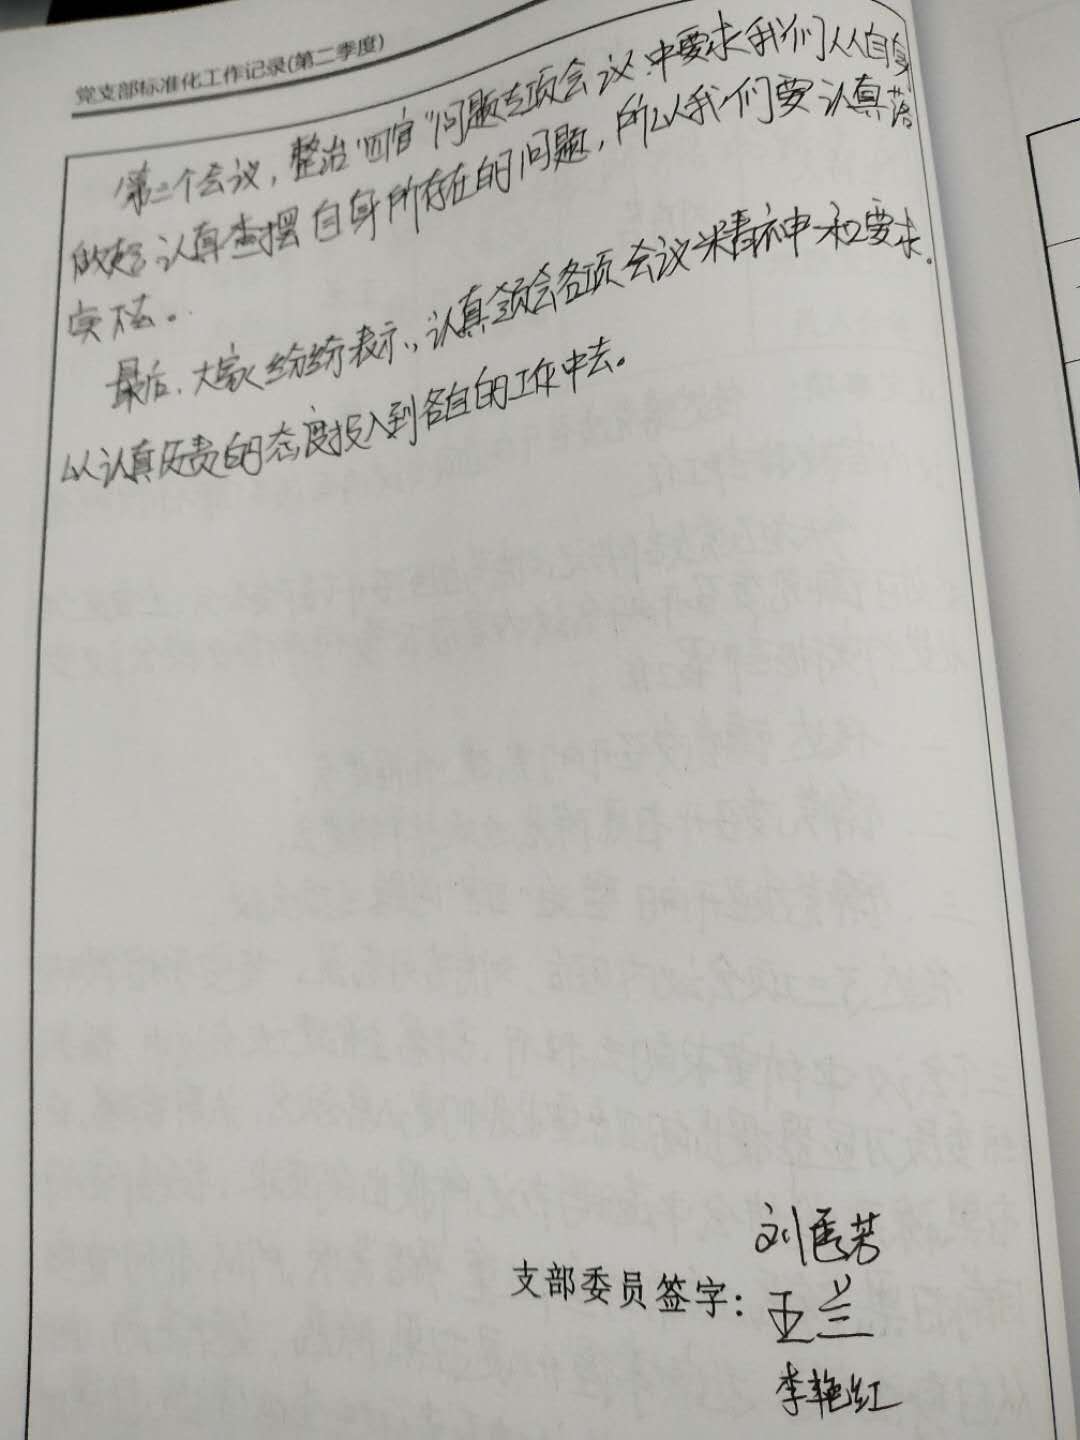 党支部标准化工作记录(第二季度)
第三个会议，整治"四官"问题专项会议中要求我们从自身
做起认真查摆自身所存在的问题，所以我们要认真落
实下去。
最后，大家纷纷表示，认真领会各项会议精神和要求.
以认真负责的态度投入到各自的工作中去。
刘秀芳
支部委员签字：
王兰
李艳红